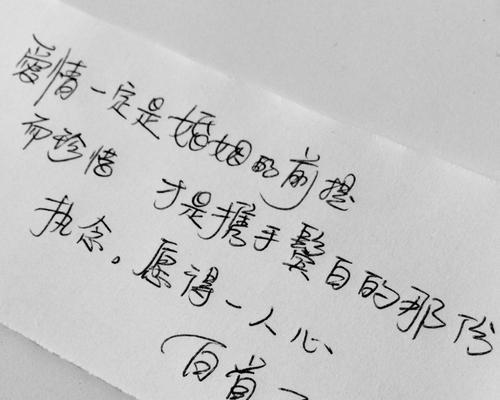 爱情一定是婚姻的前提
而珍惜 才是携手鬓白的那份
执念。愿得一人心
白首